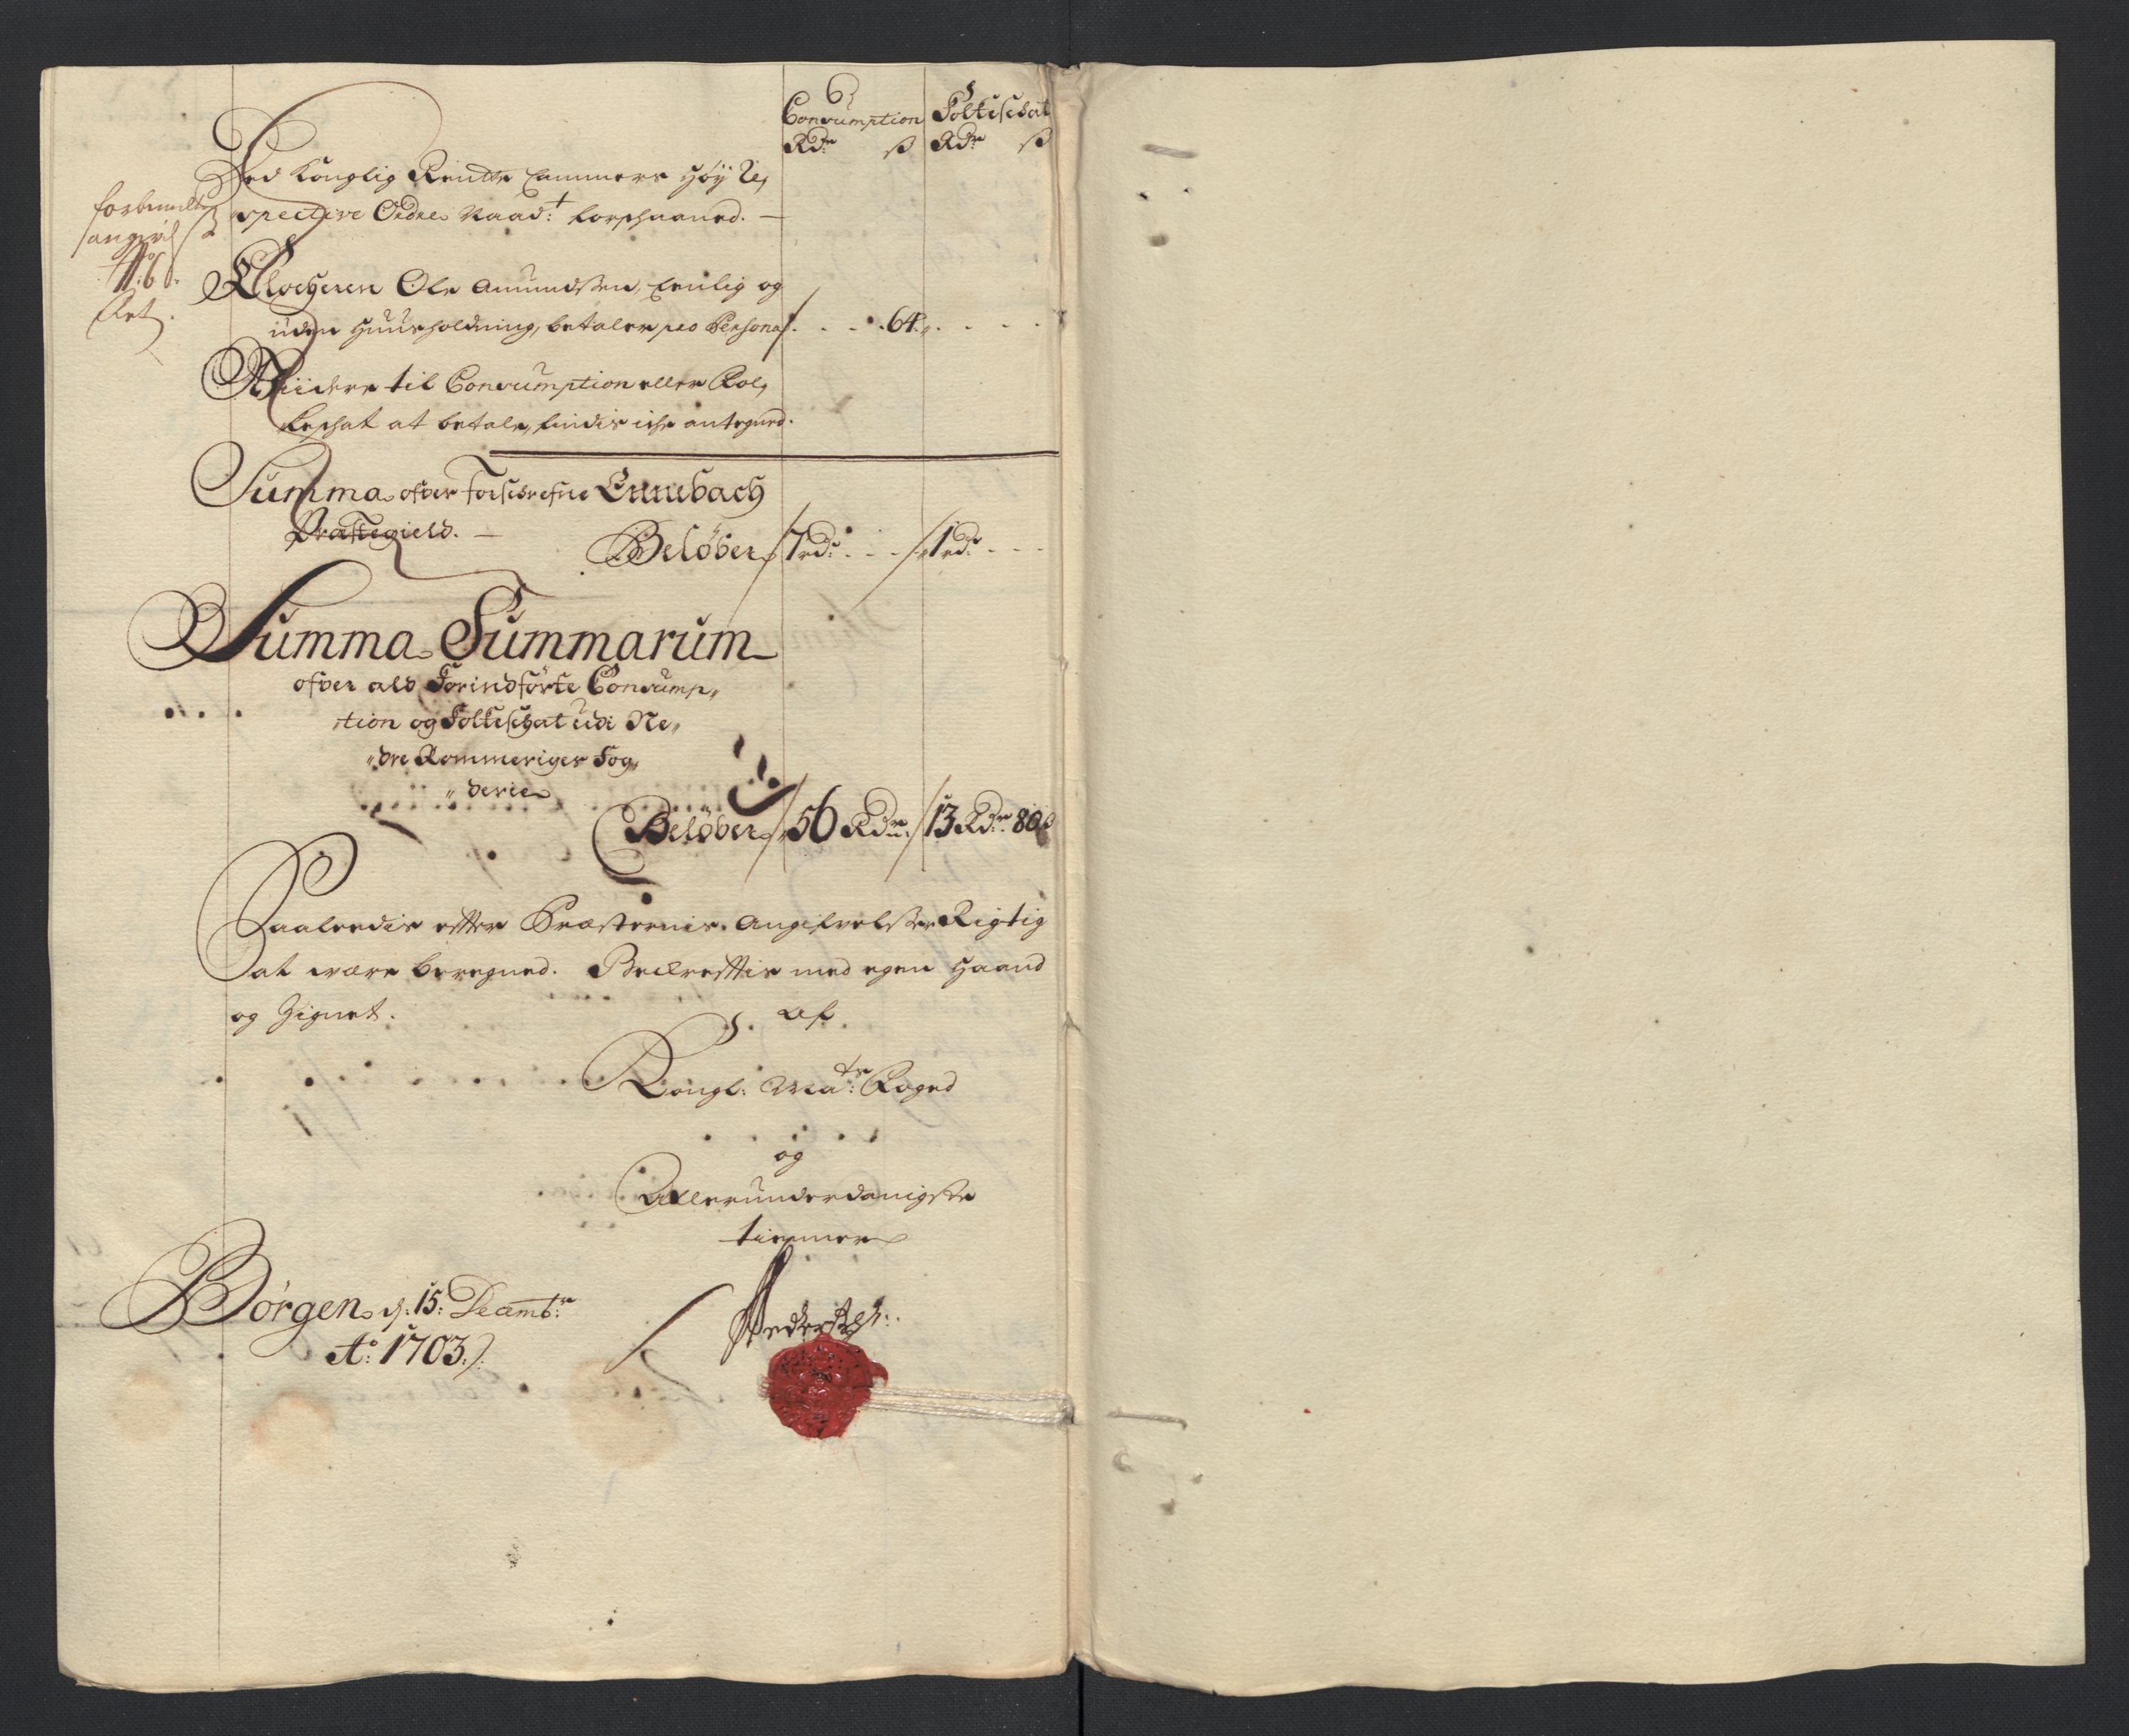 Consumption Folcheschat
Rdr ß Rdr ß
Ved Konglig Rendte Cammers Høy Re,
spective Ordre Naad:t forschaaned. —
No: 6
Klocheren Ole Amundssen, Enlig og
uden Huusholdning, betaler pro Persona . . . 64 . . . .
Viidere til Consumption eller Fol,
keschat at betale, findis iche antegned.
Summa ofver forschrefne Ennebach
Præstegield. —
Beløber 7 rd: . . . 1 rd: . . .
Summa Summarum
ofver ald Forindførte Consump,,
,,tion og Folcheschat udi Ne,,
,,dre Rommeriges Fog,,
,,derie
Beløber 56 Rdr: 13 Rdr: 80 ß
Saaledis effter Præsternis Angifvelsser Rigtig
at være beregned. Bekrefftis med egen Haand
og Zignet. af
Kongl: Ma:ts Foged
og
Allerunderdanigste
tienner
Börgen d: 15: Decembr:
Ao: 1703.